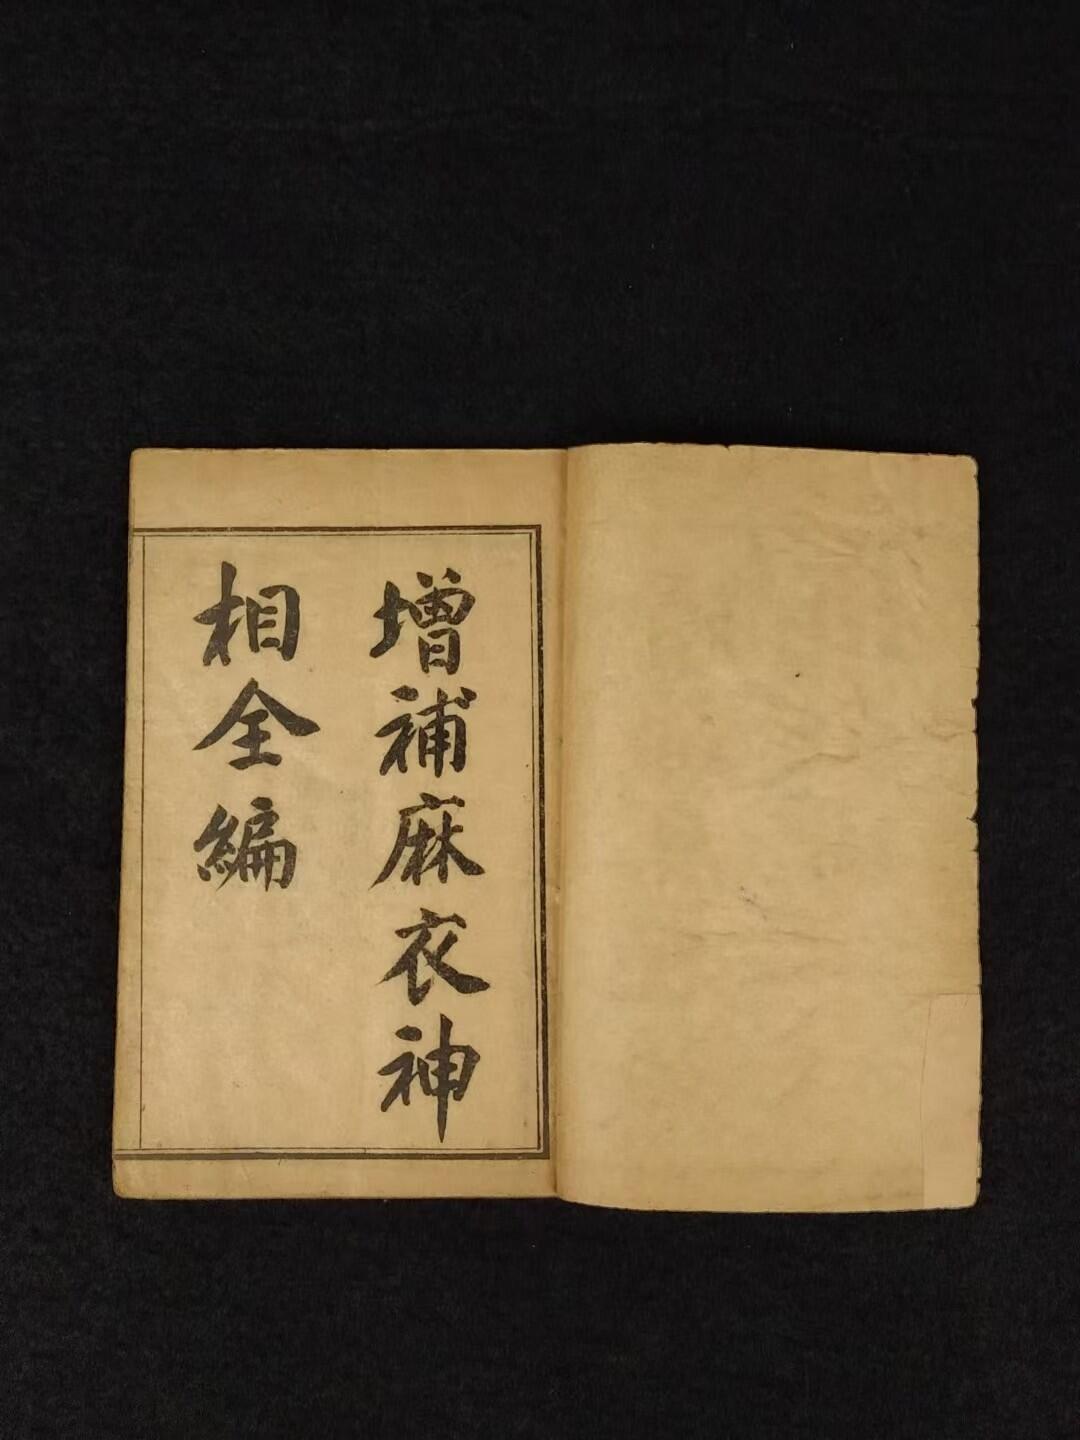 增補麻衣神
相全編